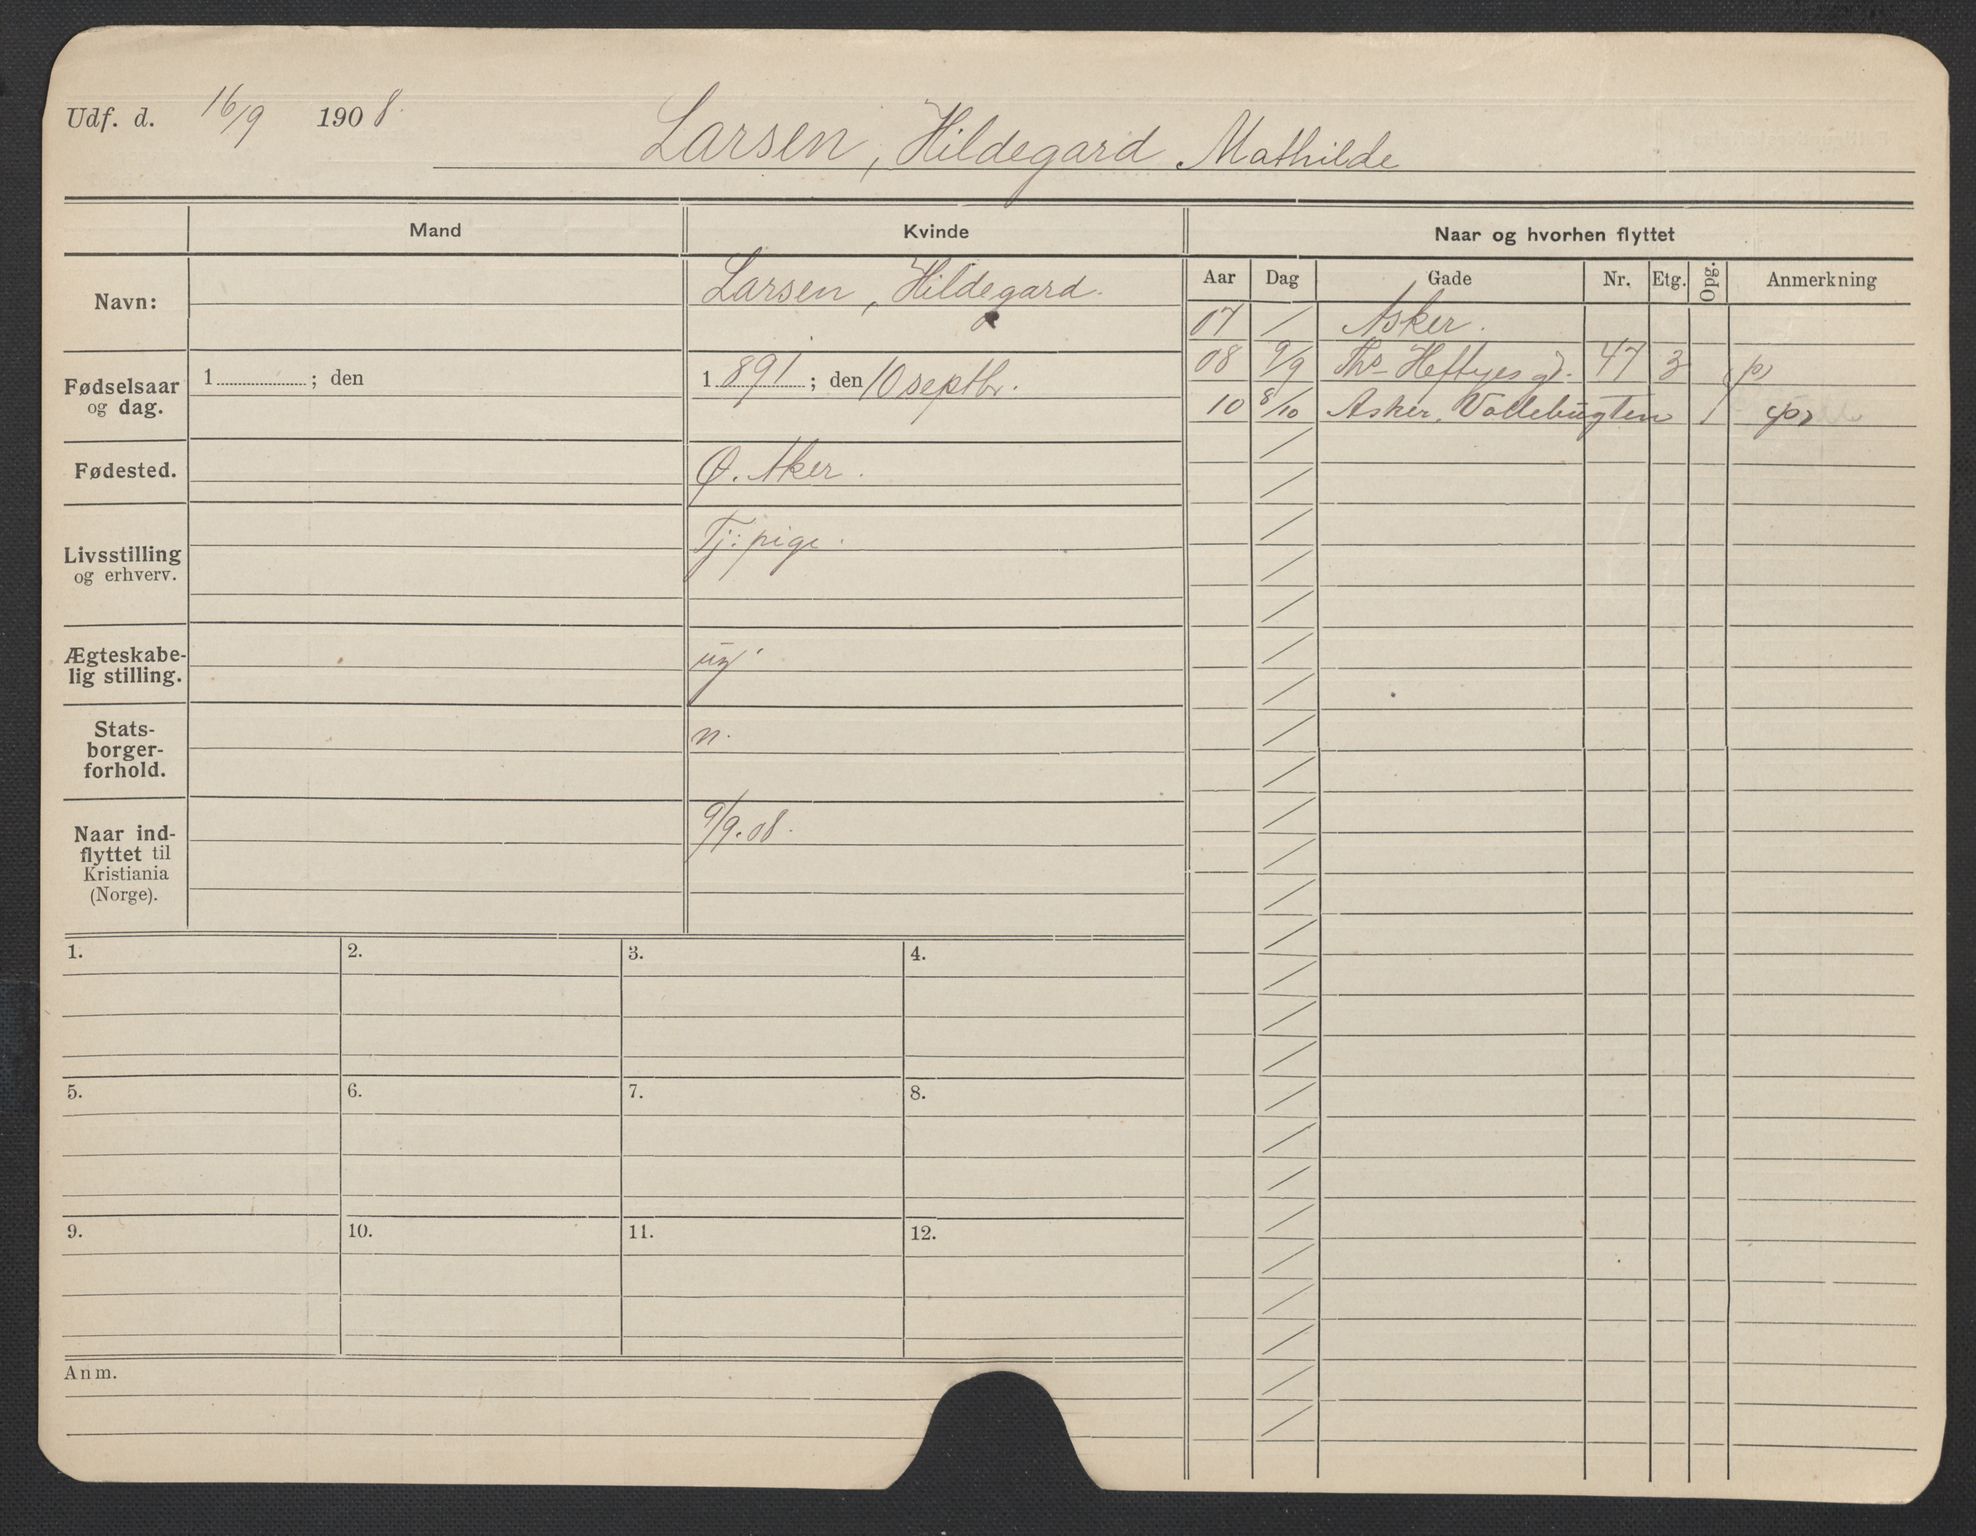 Udf. d. 16/9 1908.
Larsen, Hildegard Mathilde
Mand Kvinde Naar og hvorhen flyttet
Aar Dag Gade Nr. Etg. Opg. Anmerkning
Navn: Larsen, Hildegard.
07 / Asker.
08 9/9 Ths Heftyes gd. 47 3
10 8/10 Asker, Vollebugten
Fødselsaar og dag. 1 ; den 1891 ; den 10 septbr.
Fødested. Ø. Aker.
Livsstilling og erhverv. Tj: pige.
Ægteskabe-
lig stilling. ug
Stats-
borger-
forhold. n.
Naar ind-
flyttet til
Kristiania
(Norge). 9/9.08.
1. 2. 3. 4.
5. 6. 7. 8.
9. 10. 11. 12.
Anm.